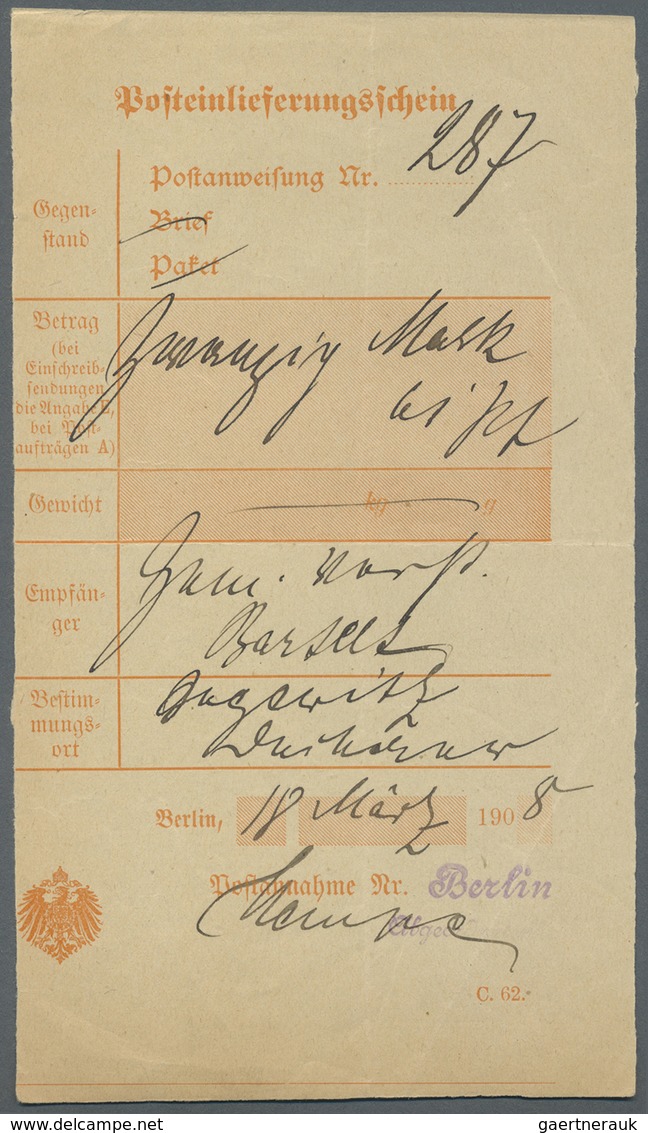 Posteinlieferungsschein
Gegen-
stand
Postanweisung Nr. 287
Brief
Paket
Betrag
(bei
Einschreib-
sendungen
die Angabe E,
bei Post-
aufträgen A)
Zwanzig Mark
61 Pf
Gewicht
kg g
Empfän-
ger
Gem. Vorst.
Bartelt
Bestim-
mungs-
ort
Berlin, 18 März 1908
Postannahme Nr. Berlin
C. 62.
DELCAMPE.NET
gaertnerauk